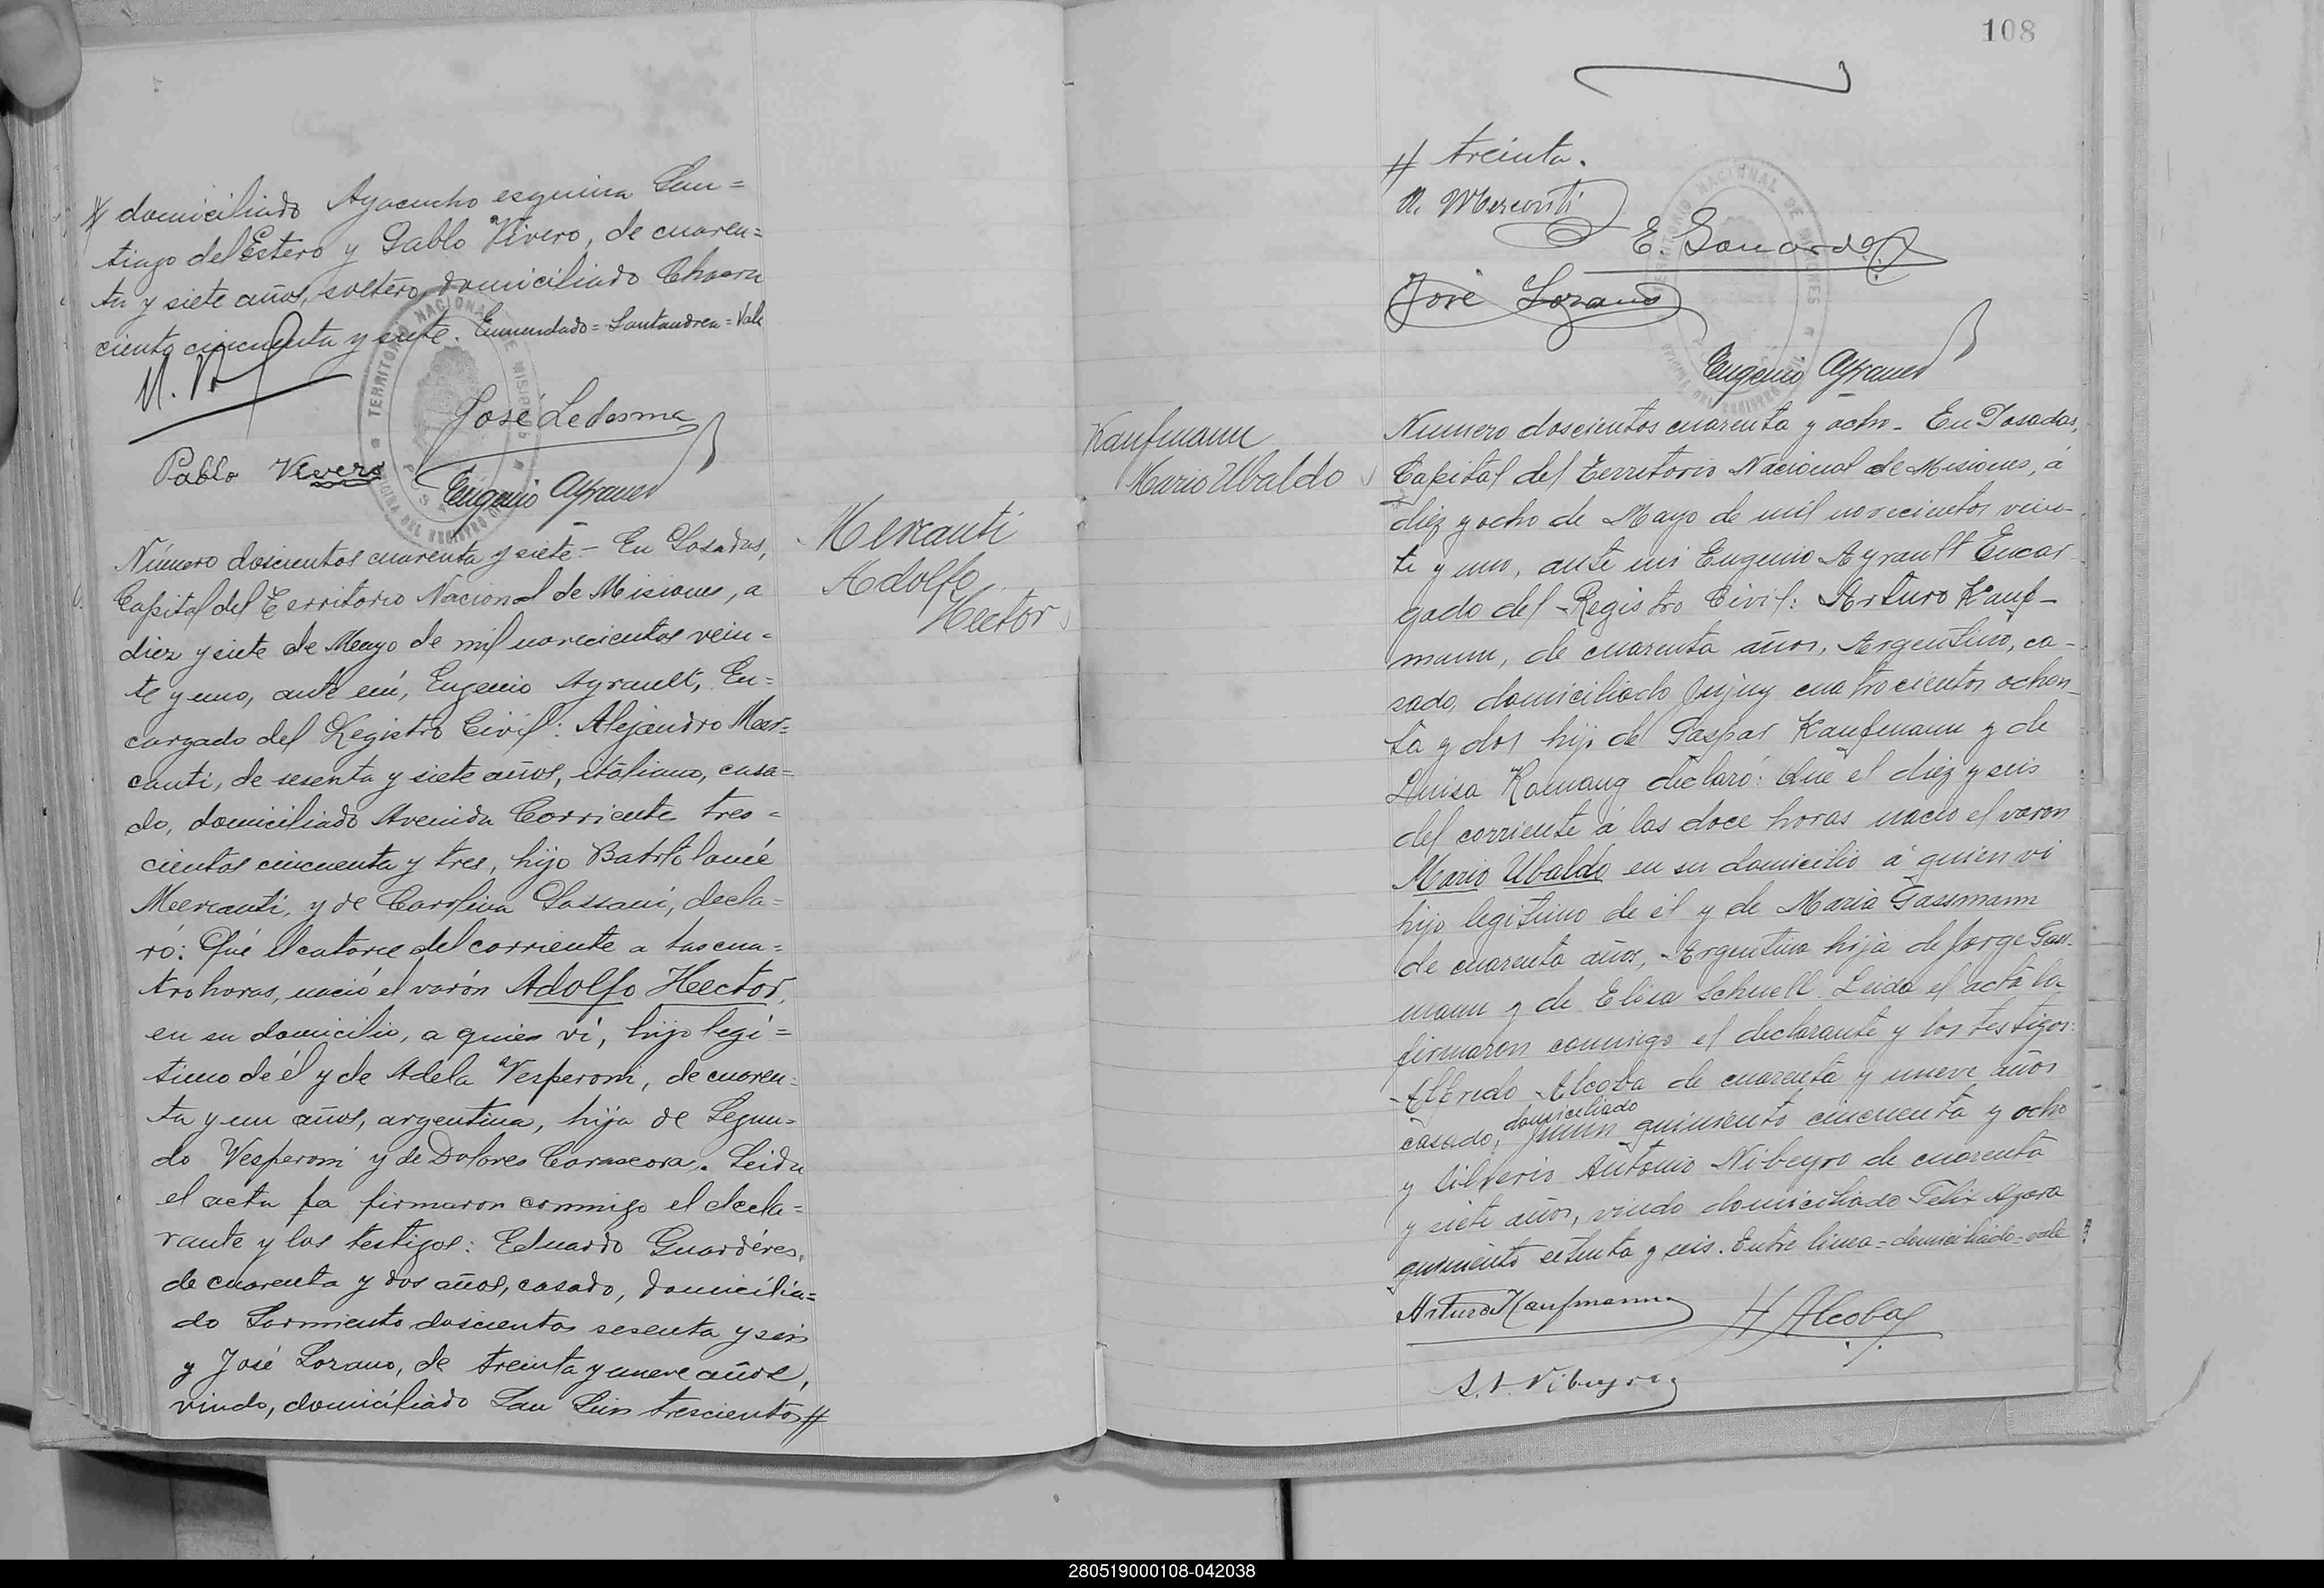 # domiciliado Ayacucho esquina San=
tiago del Estero y Pablo Vivero, de cuaren=
ta y siete años, soltero, domiciliado Chacra
ciento cincuenta y siete. Enmendado=Santandrea=Vale
José Ledesma
Pablo Vivero
Eugenio Ayrault
Mercanti
Adolfo
Hector
Número doscientos cuarenta y siete.- En Posadas,
Capital del Territorio Nacional de Misiones, a
diez y siete de Mayo de mil novecientos vein=
te y uno, ante mí, Eugenio Ayrault, En=
cargado del Registro Civil: Alejandro Mer=
canti, de sesenta y siete años, italiano, casa=
do, domiciliado Avenida Corriente tres=
cientos cincuenta y tres, hijo Bartolomé
Mercanti, y de Carolina Gassani, decla=
ró: Qué el catorce del corriente a las cua=
tro horas, nació el varón Adolfo Hector,
en su domicilio, a quien ví, hijo legí=
timo de él y de Adela Vesperoni, de cuaren=
ta y un años, argentina, hija de Segun=
do Vesperoni y de Dolores. Leida
el acta la firmaron conmigo el decla=
rante y los testigos: Eduardo Guardéres,
de cuarenta y dos años, casado, domicilia=
do Sarmiento doscientos sesenta y seis
y José Lozano, de treinta y nueve años,
viudo, domiciliado San Luis trescientos #
108
# treinta.
A. Mercanti
José Lozano
Eugenio Ayrault
Kaufmann
Mario Ubaldo
Numero doscientos cuarenta y ocho - En Posadas,
Capital del Territorio Nacional de Misiones, á
diez y ocho de Mayo de mil novecientos vein-
te y uno, ante mi Eugenio Ayrault Encar
gado del Registro Civil: Arturo Kauf-
mann, de cuarenta años, Argentino, ca-
sado, domiciliado Jujuy cuatrocientos ochen-
ta y dos hijo de Gaspar Kaufmann y de
Luisa Kamang declaró: Que el diez y seis
del corriente á las doce horas nació el varon
Mario Ubaldo en su domicilio á quien vi
hijo legitimo de él y de Maria Gassmann
de cuarenta años, Argentina hija de Jorge Gass-
mann y de Elisa Schnell. Leida el acta la
firmaron conmigo el declarante y los testigos:
Alfredo Alcoba de cuarenta y nueve años
domiciliado
casado, Junin quiniento cincuenta y ocho
y Silverio Antonio Nibeyro de cuarenta
y siete años, viudo domiciliado Felix Azara
quiniento setenta y seis. Entre linea=domiciliado=vale
Arturo Kaufmann
Alcoba
S. A. Nibeyro
280519000108-042038